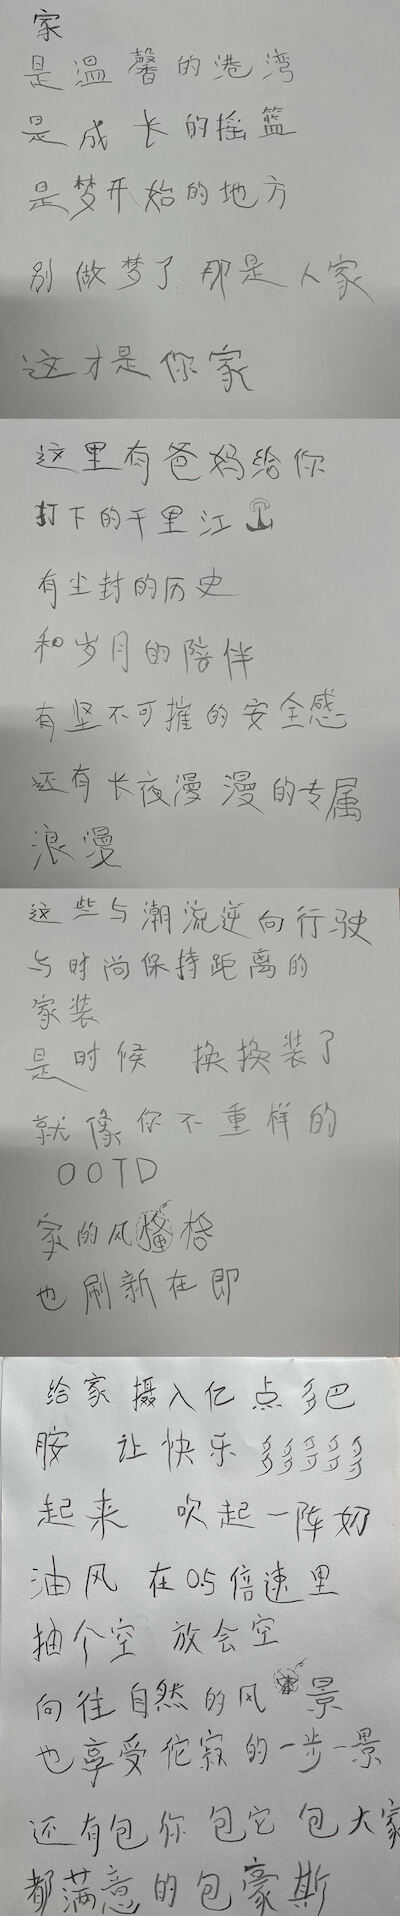 家
是温馨的港湾
是成长的摇篮
是梦开始的地方
别做梦了 那是人家
这才是你家
这里有爸妈给你
打下的千里江
有尘封的历史
和岁月的陪伴
有坚不可摧的安全感
还有长夜漫漫的专属
浪漫
这些与潮流逆向行驶
与时尚保持距离的
家装
是时候 换换装了
就像你不重样的
OOTD
家的风格
也刷新在即
给家摄入亿点多巴
胺 让快乐多多多多多
起来 吹起一阵奶
油风 在0.5倍速里
抽个空 放会空
向往自然的风景
也享受侘寂的一步一景
还有包你包它包大家
都满意的包豪斯